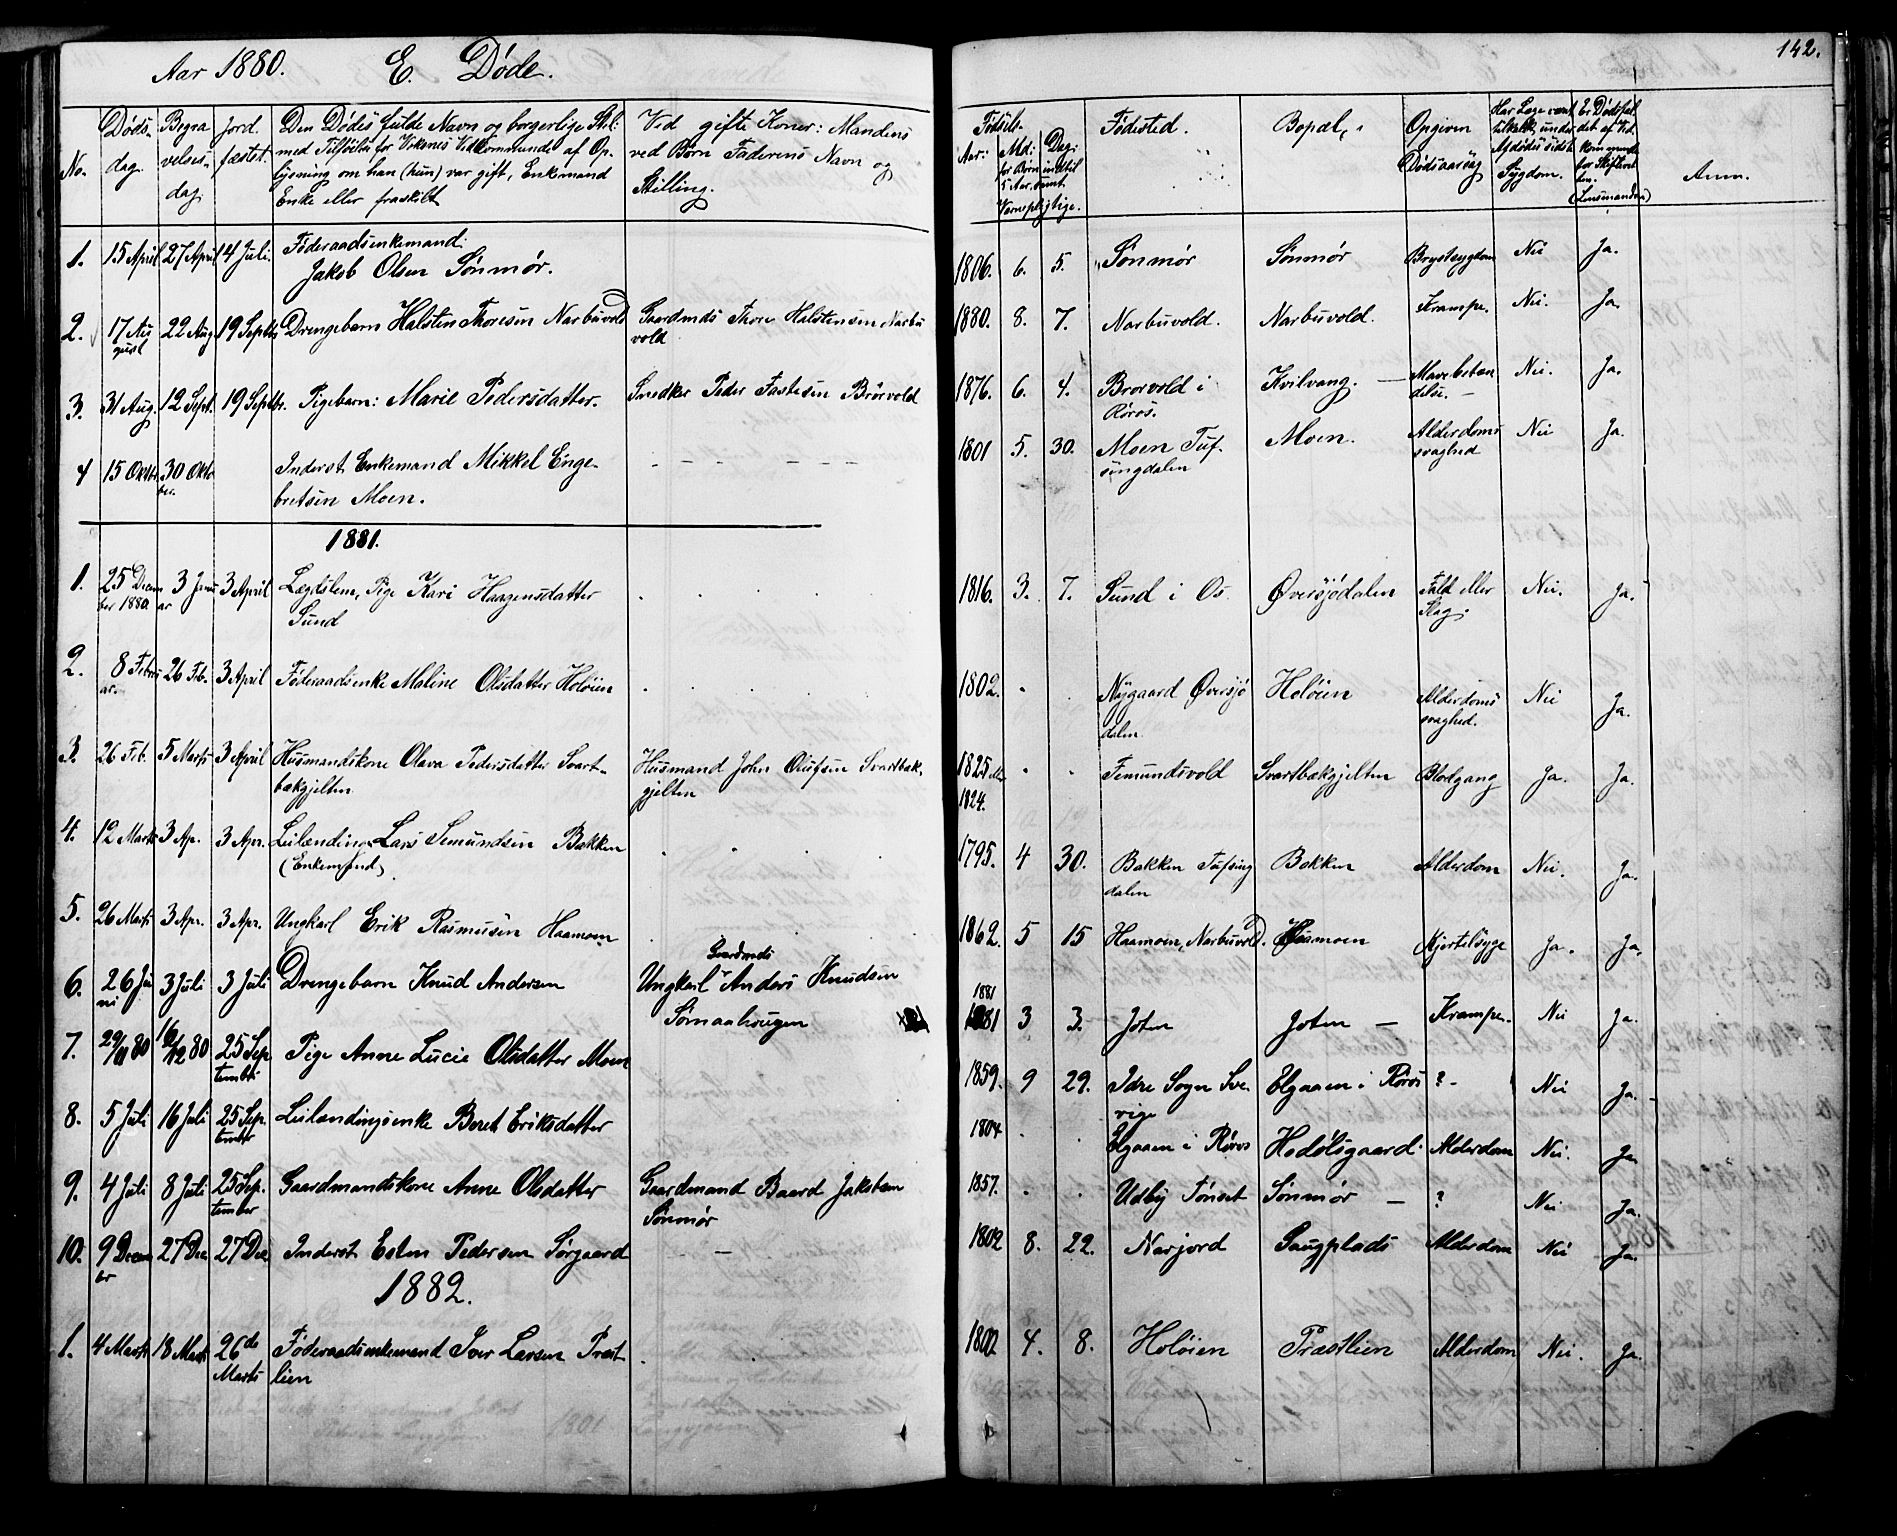 Aar 1880. E. Døde.
142.
No.
Døds-
dag.
Begra
velses-
dag.
Jord.
fæstet.
Den Dødes fulde Navn og borgerlige Stil:
med Tilføielse for Vedkommende af Op-
lysning om han (hun) var gift, Enkemand
Enke eller fraskilt
Ved gifte Koner: Mandens
ved Børn Faderens Navn og
Stilling.
Fødsels-
Aar:
Md:
Dag:
for Børn indtil
5 Aar, samt
Værnepligtige.
Fødested.
Bopæl.
Opgiven
Dødsaarsag
Har Læge været
tilkaldt under
Afdødes sidste
Sygdom.
Er Dødsfal-
det af Ved.
kommende
for Skifteret
ten.
(Lensmanden)
Anm.
1. 15 April 27 April 4 Juli. Føderaadsenkemand:
Jakob Olsen Sønmør.
1806. 6. 5. Sønmør Sønmør Brystsygdom Nei Ja.
2. 17 Au 22 Aug 19 Septbr Drengebarn Halsten Thoresen Narbuvold Gaardmds Thore Halstensen Narbu
gust vold
1880. 8. 7. Narbuvold. Narbuvold. Krampe. Nei. Ja.
3. 31 Aug. 12 Sept. 19 Septbr. Pigebarn: Marie Pedersdatter. Snedker Peder Fastesen Brorvold
1876. 6. 4. Brorvold i Kvilvang. — Mavebetæn Nei. Ja.
Røros. delse. —
4 15 Oktbr. 30 Okto Inderst. Enkemand Mikkel Enge-
ber. bretsen Moen.
1801 5. 30. Moen Tuf- Moen. Alderdoms Nei Ja.
singdalen svaghed
1881.
1. 25 Decem 3 Janu 3 April Lægdslem, Pige Kari Haagensdatter
ber 1880. ar Sund
1816. 3. 7. Sund i Os. Øversjødalen Fald eller Nei. Ja.
Slag.
2. 8 Febru 26 Feb. 3 April Føderaadsenke Maline Olsdatter Holøien
ar.
1802. Nygaard Øversjø Holøien Alderdoms Nei Ja.
dalen svaghed.
3. 26 Feb. 5 Marts 3 April Husmandskone Olava Pedersdatter Svart- Husmand John Olufsen Svartbæk.
bækgjelten gjelten
1825 eller Femundsvold Svartbækgjelten Blodgang Ja. Ja.
1824.
4. 12 Marts 3 Ap. 3 Apr. Leilænding Lars Semundsen Bakken
(Enkemand)
1795. 4 30. Bakken Tufsing Bakken Alderdom Nei. Ja.
dalen
5. 26 Marts 3 Apr. 3 Apr. Ungkarl Erik Rasmusen Haamoen
1862. 5 15 Haamoen, Narbuvold. Haamoen Hjertesyge Ja. Ja.
6. 26 Ju 3 Juli 3 Juli Drengebarn Knud Andersen Gaardmds
ni Ungkarl Anders Knudsen
Sømaahougen
1881
1881 3 3. Joten Joten — Krampe. Nei Ja.
7. 29/11 80 16/12 80 25 Sep Pige Anne Lucie Olsdatter Moen
tember
1859. 9 29. Idre Sogn Sve Elgaaen i Røros ? - Nei Ja.
rige
8. 5 Juli 16 Juli 25 Sep. Leilændingsenke Beret Eriksdatter
tember
1804 Elgaaen i Røros Hodølsgaard Alderdom Nei. Ja
9. 4 Juli 8 Juli 25 Sep. Gaardmandskone Anne Olsdatter Gaardmand Baard Jakobsen
tember Sønmør
1857. Udby Tønset Sønmør — ? Nei Ja.
10. 9 Decem 27 Dec 27 Dec. Inderst Esten Pedersen Sørgaard —
ber
1802 8. 22. Narjord Saugplads Alderdom Nei Ja.
1882.
1. 4 Marts 18 Marts 26de Føderaadsenkemand Iver Larsen Præst
Marts lien
1802 4. 8. Holøien Præstlien Alderdom Nei. Ja.